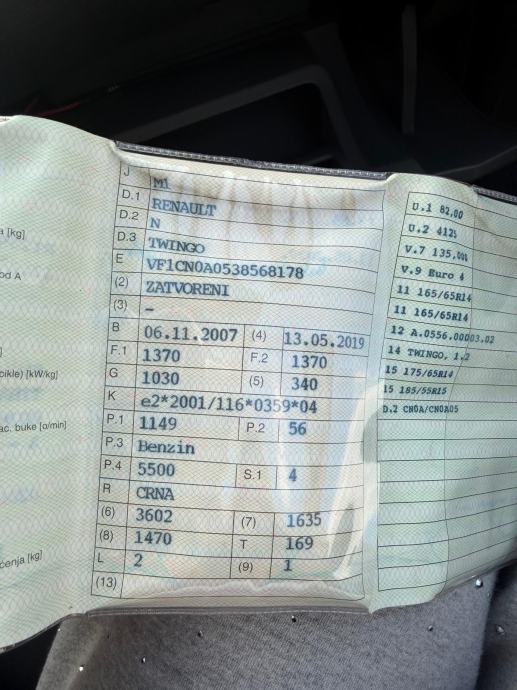 a [kg]
od A
]
cikle) [kW/kg]
ac. buke [o/min]
cenja [kg]
J M1
D.1 RENAULT
D.2 N
D.3 TWINGO
E VF1CN0A0538568178
(2) ZATVORENI
(3) –
B 06.11.2007 (4) 13.05.2019
F.1 1370 F.2 1370
G 1030 (5) 340
K e2*2001/116*0359*04
P.1 1149 P.2 56
P.3 Benzin
P.4 5500 S.1 4
R CRNA
(6) 3602 (7) 1635
(8) 1470 T 169
L 2 (9) 1
(13)
U.1 82,00
U.2 4125
V.7 135,000
V.9 Euro 4
11 165/65R14
11 165/65R14
12 A.0556.00003.02
14 TWINGO, 1.2
15 175/65R14
15 185/55R15
D.2 CN0A/CN0A05